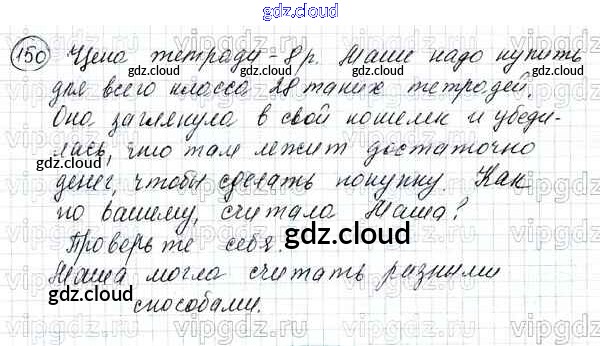 gdz.cloud
150 Цена тетради - 8 р. Маше надо купить
для всего класса 28 таких тетрадей.
Она заглянула в свой кошелек и убеди-
лась, что там лежит достаточно
денег, чтобы сделать покупку. Как
по вашему, считала Маша?
Проверьте себя.
Маша могла считать разными
способами.
gdz.cloud